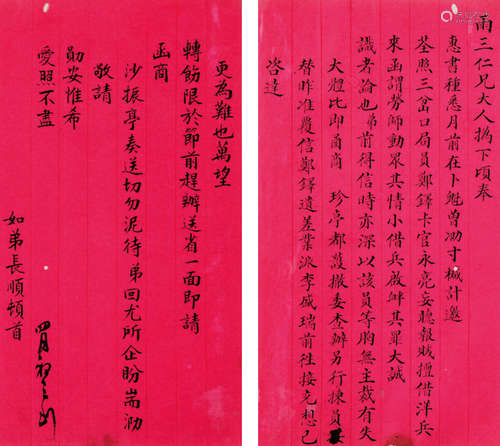 雨三仁兄大人揔下頃奉
惠書種悉月前在卜魁曾泐寸椷計邀
荃照三岔口局員鄭鐸卡官永亮妄聽報賊擅借洋兵
來函謂勞師動眾其情小借兵啟衅其罪大誠
識者論也弟前得信時亦深以該員等胸無主裁有失
大體比即函商 珍亭都護撤委查辦另行揀員
替昨准覆信鄭鐸遺差業派李盛瑞前往接充想已
咨達
更為難也萬望
轉飭限於節前趕辦送省一面即請
函商
沙振亭奏送切勿泥待弟回尤所企盼耑泐
敬請
勛安惟希
愛照不盡
如弟長順頓首
四月